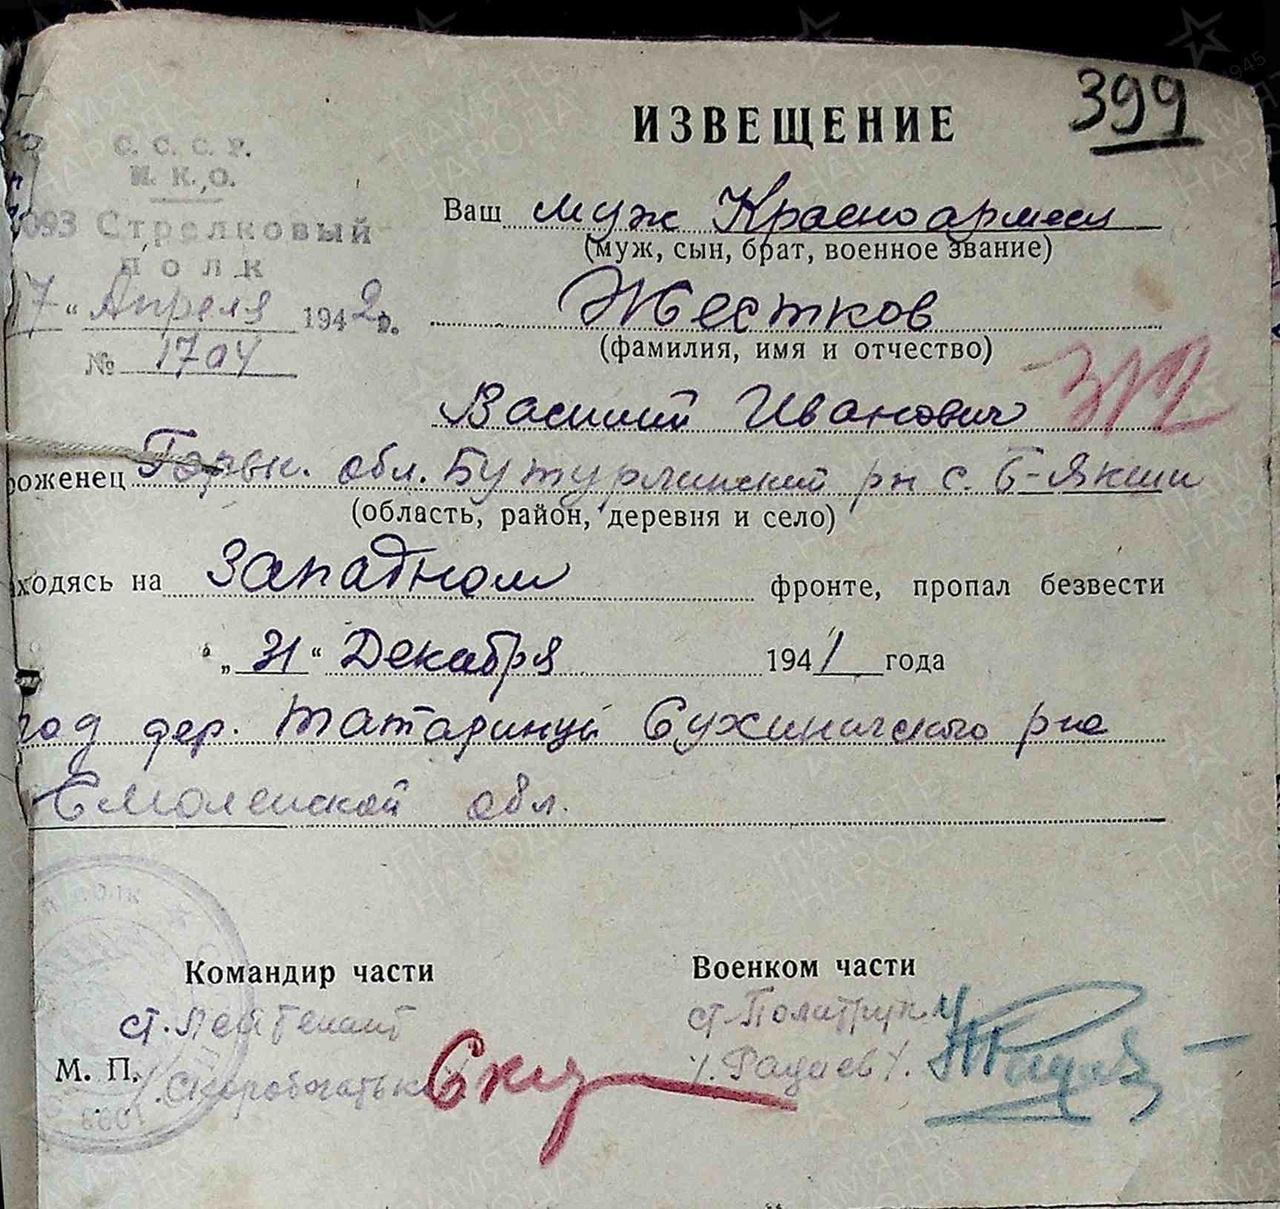 399
ИЗВЕЩЕНИЕ
С. С. С. Р.
Н. К. О.
1093 Стрелковый
полк
17 " Апреля 1942 г.
№ 1704
Ваш муж Красноармеец
(муж, сын, брат, военное звание)
Жестков
(фамилия, имя и отчество)
Василий Иванович
роженец Горьк. обл. Бутурлинский р-н с. Б-Якши
(область, район, деревня и село)
ходясь на Западном фронте, пропал безвести
„ 31 “ Декабря 1941 года
под дер. Татаринцы Сухиничского р-на
Смоленской обл.
Командир части
Военком части
ст. Лейтенант
ст. Политрук
М. П.
/. Скоробогатько
/. Радаев /.
ПАМЯТЬ НАРОДА